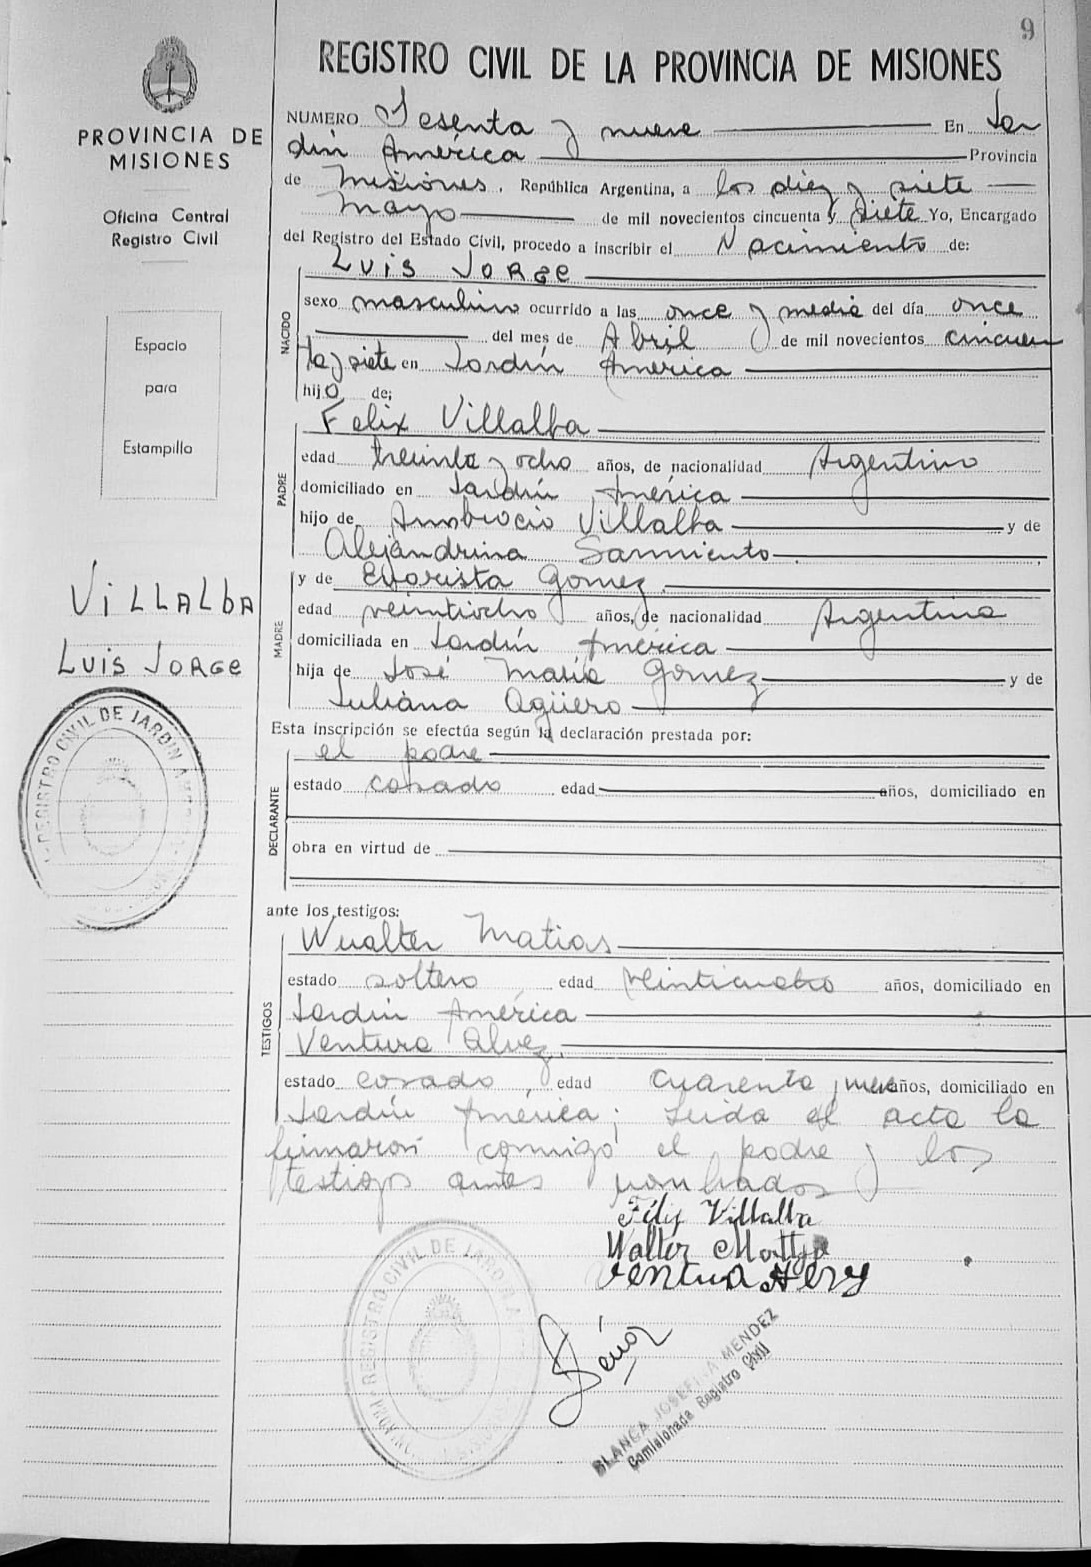 9
REGISTRO CIVIL DE LA PROVINCIA DE MISIONES
PROVINCIA DE
MISIONES
Oficina Central
Registro Civil
Espacio
para
Estampilla
VILLALBA
LUIS JORGE
REGISTRO CIVIL DE JARDIN
NUMERO Sesenta y nueve En Jar
din América Provincia
de Misiones. República Argentina, a los diez y siete
mayo de mil novecientos cincuenta y siete Yo, Encargado
del Registro del Estado Civil, procedo a inscribir el Nacimiento de:
NACIDO
LUIS JORGE
sexo masculino ocurrido a las once y media del día once
del mes de Abril de mil novecientos cincuen
ta y siete en Jardín América
hijo de;
PADRE
Felix Villalba
edad treinta y ocho años, de nacionalidad Argentino
domiciliado en Jardín América
hijo de Ambrocio Villalba y de
Alejandrina Sarmiento
MADRE
y de Evarista Gomez
edad veintiocho años, de nacionalidad Argentina
domiciliada en Jardín América
hija de José María Gomez y de
Juliana Agüero
Esta inscripción se efectúa según la declaración prestada por:
DECLARANTE
el padre
estado casado edad años, domiciliado en
obra en virtud de
ante los testigos:
TESTIGOS
Wualter Matias
estado soltero edad veinticuatro años, domiciliado en
Jardín América
Ventura Alvez
estado casado, edad cuarenta y años, domiciliado en
Jardín América; leida el acta la
firmaron conmigo el padre y los
testigos antes nombrados
Villalba
Walter
Ventura
REGISTRO CIVIL DE JARDIN
BLANCA JOSEFINA MENDEZ
Comisionada Registro Civil